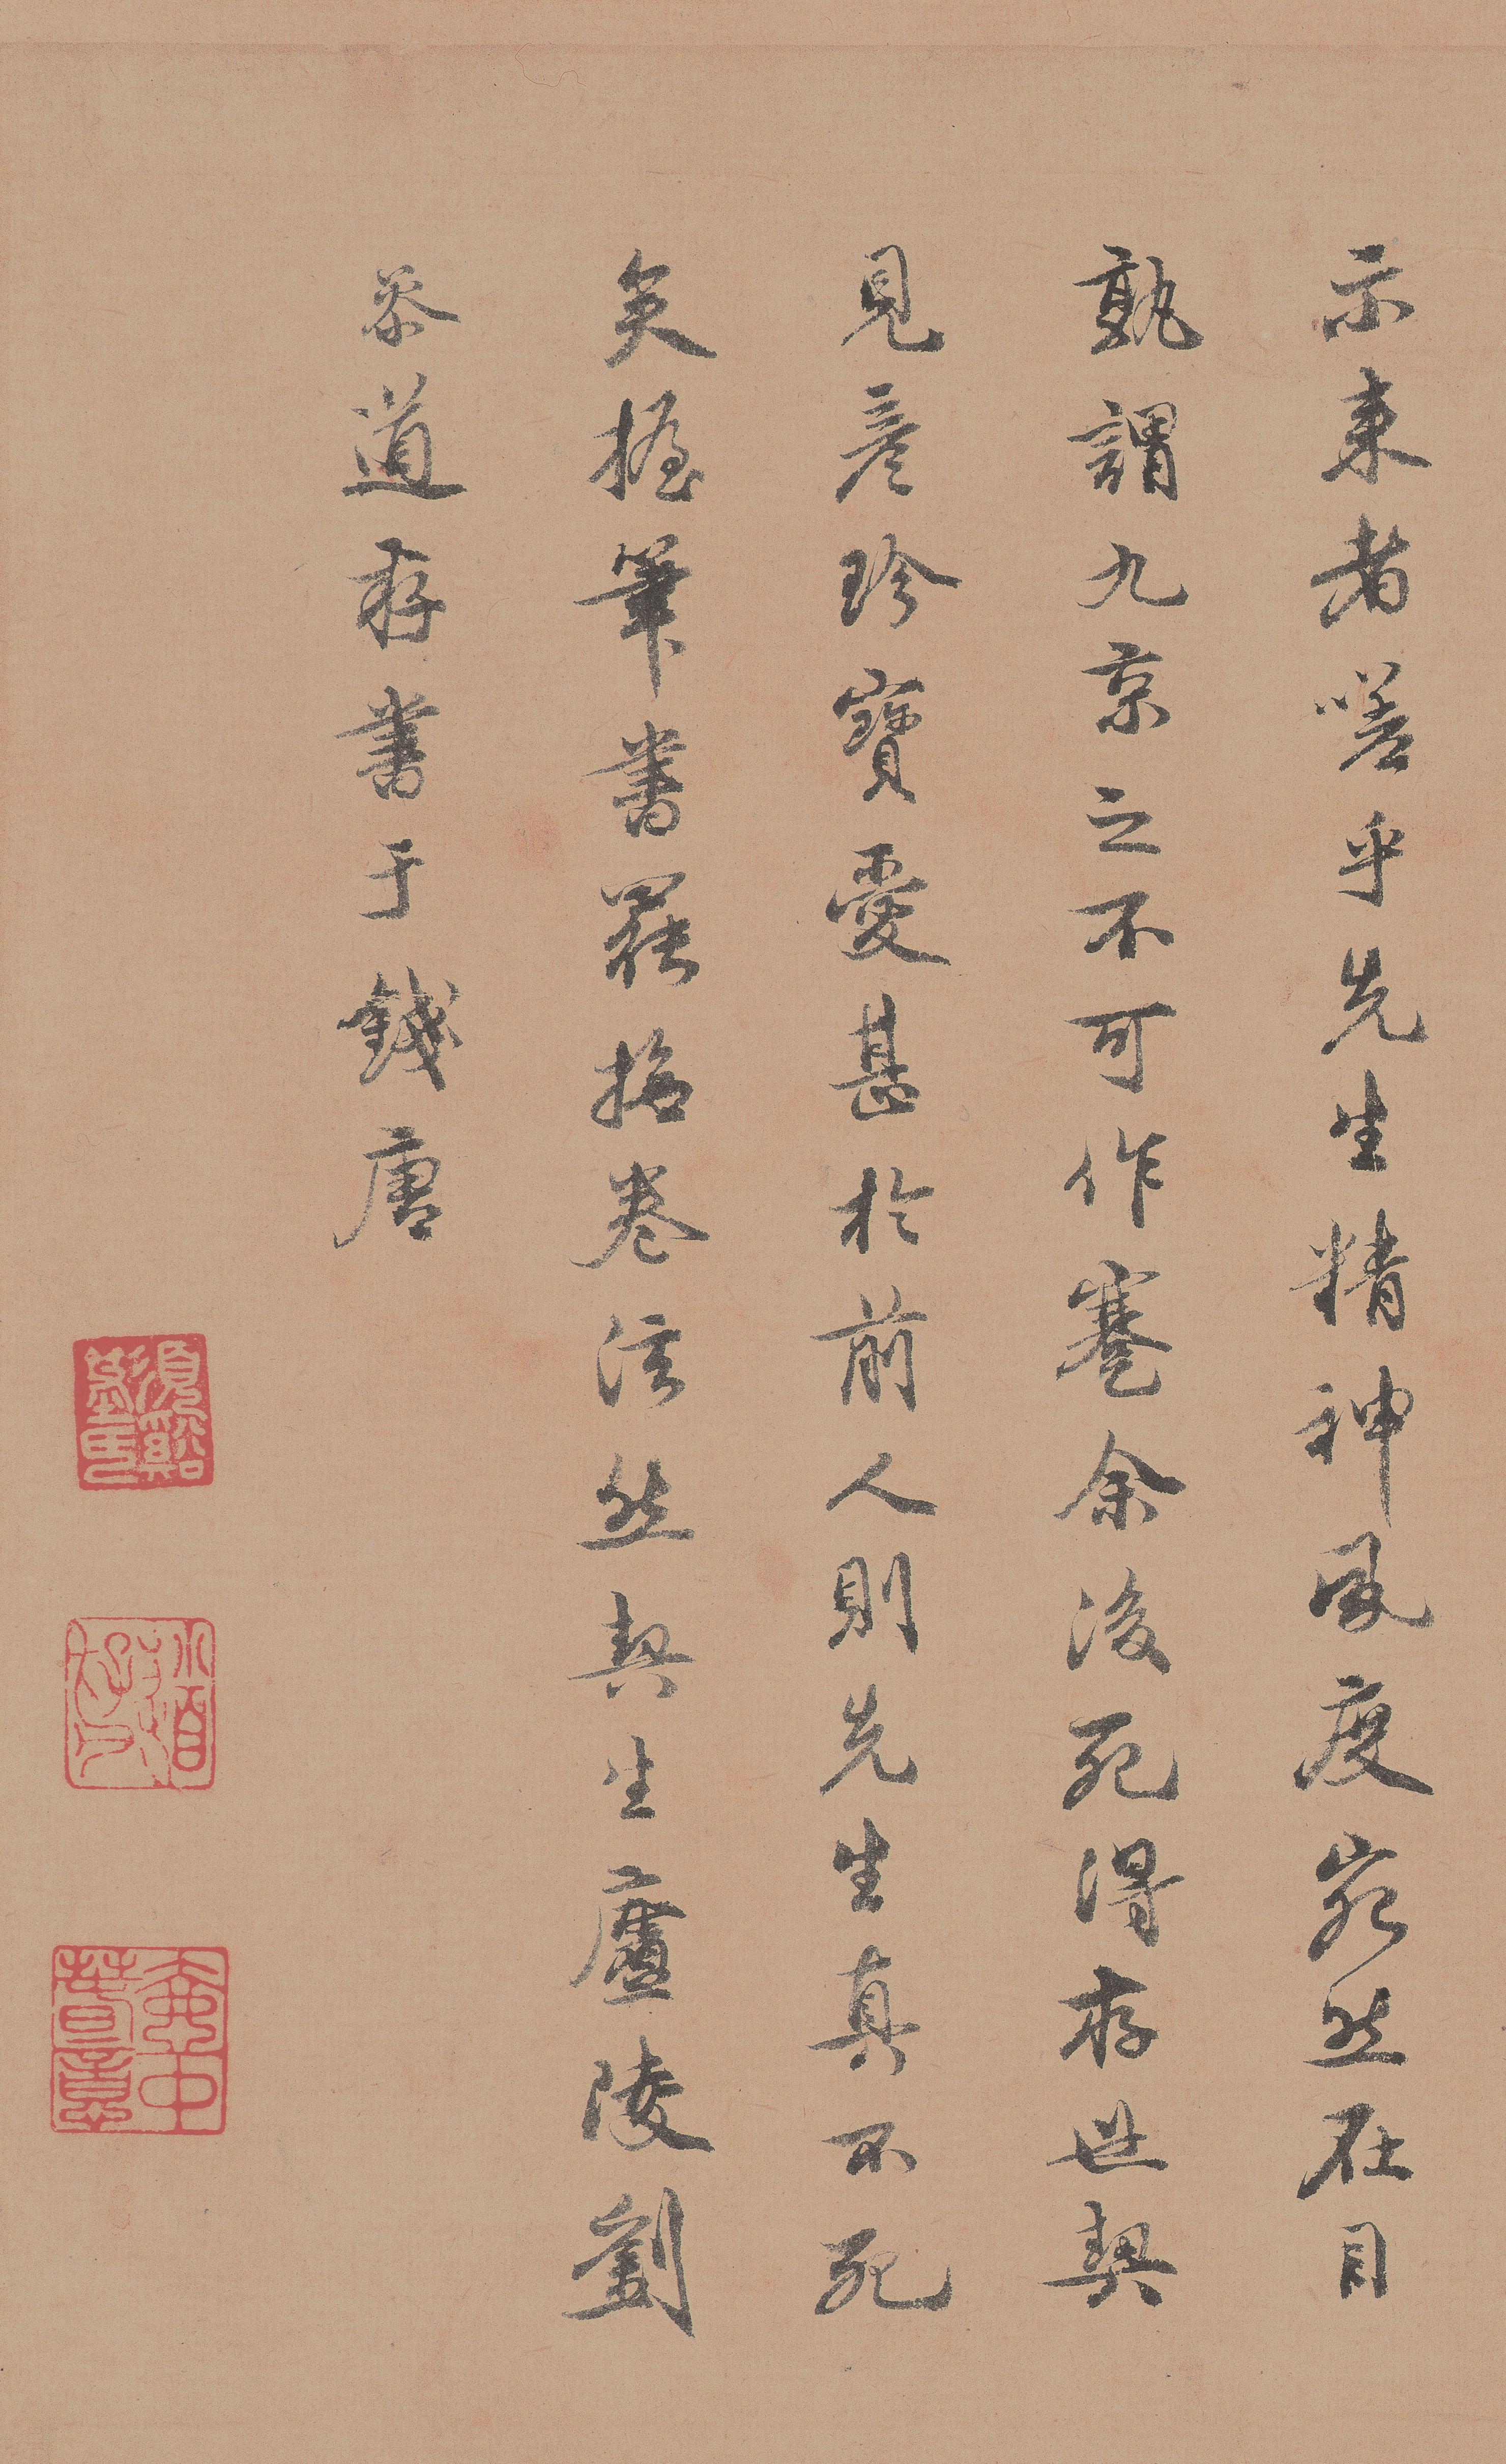 示来者嗟乎先生精神风度宛然在目
孰謂九京之不可作蹇余後死得存世契
見彦珍寶愛甚於前人則先生真不死
矣握筆書罷掩卷泫然契生廬陵劉
恭道存書于錢唐
須谿